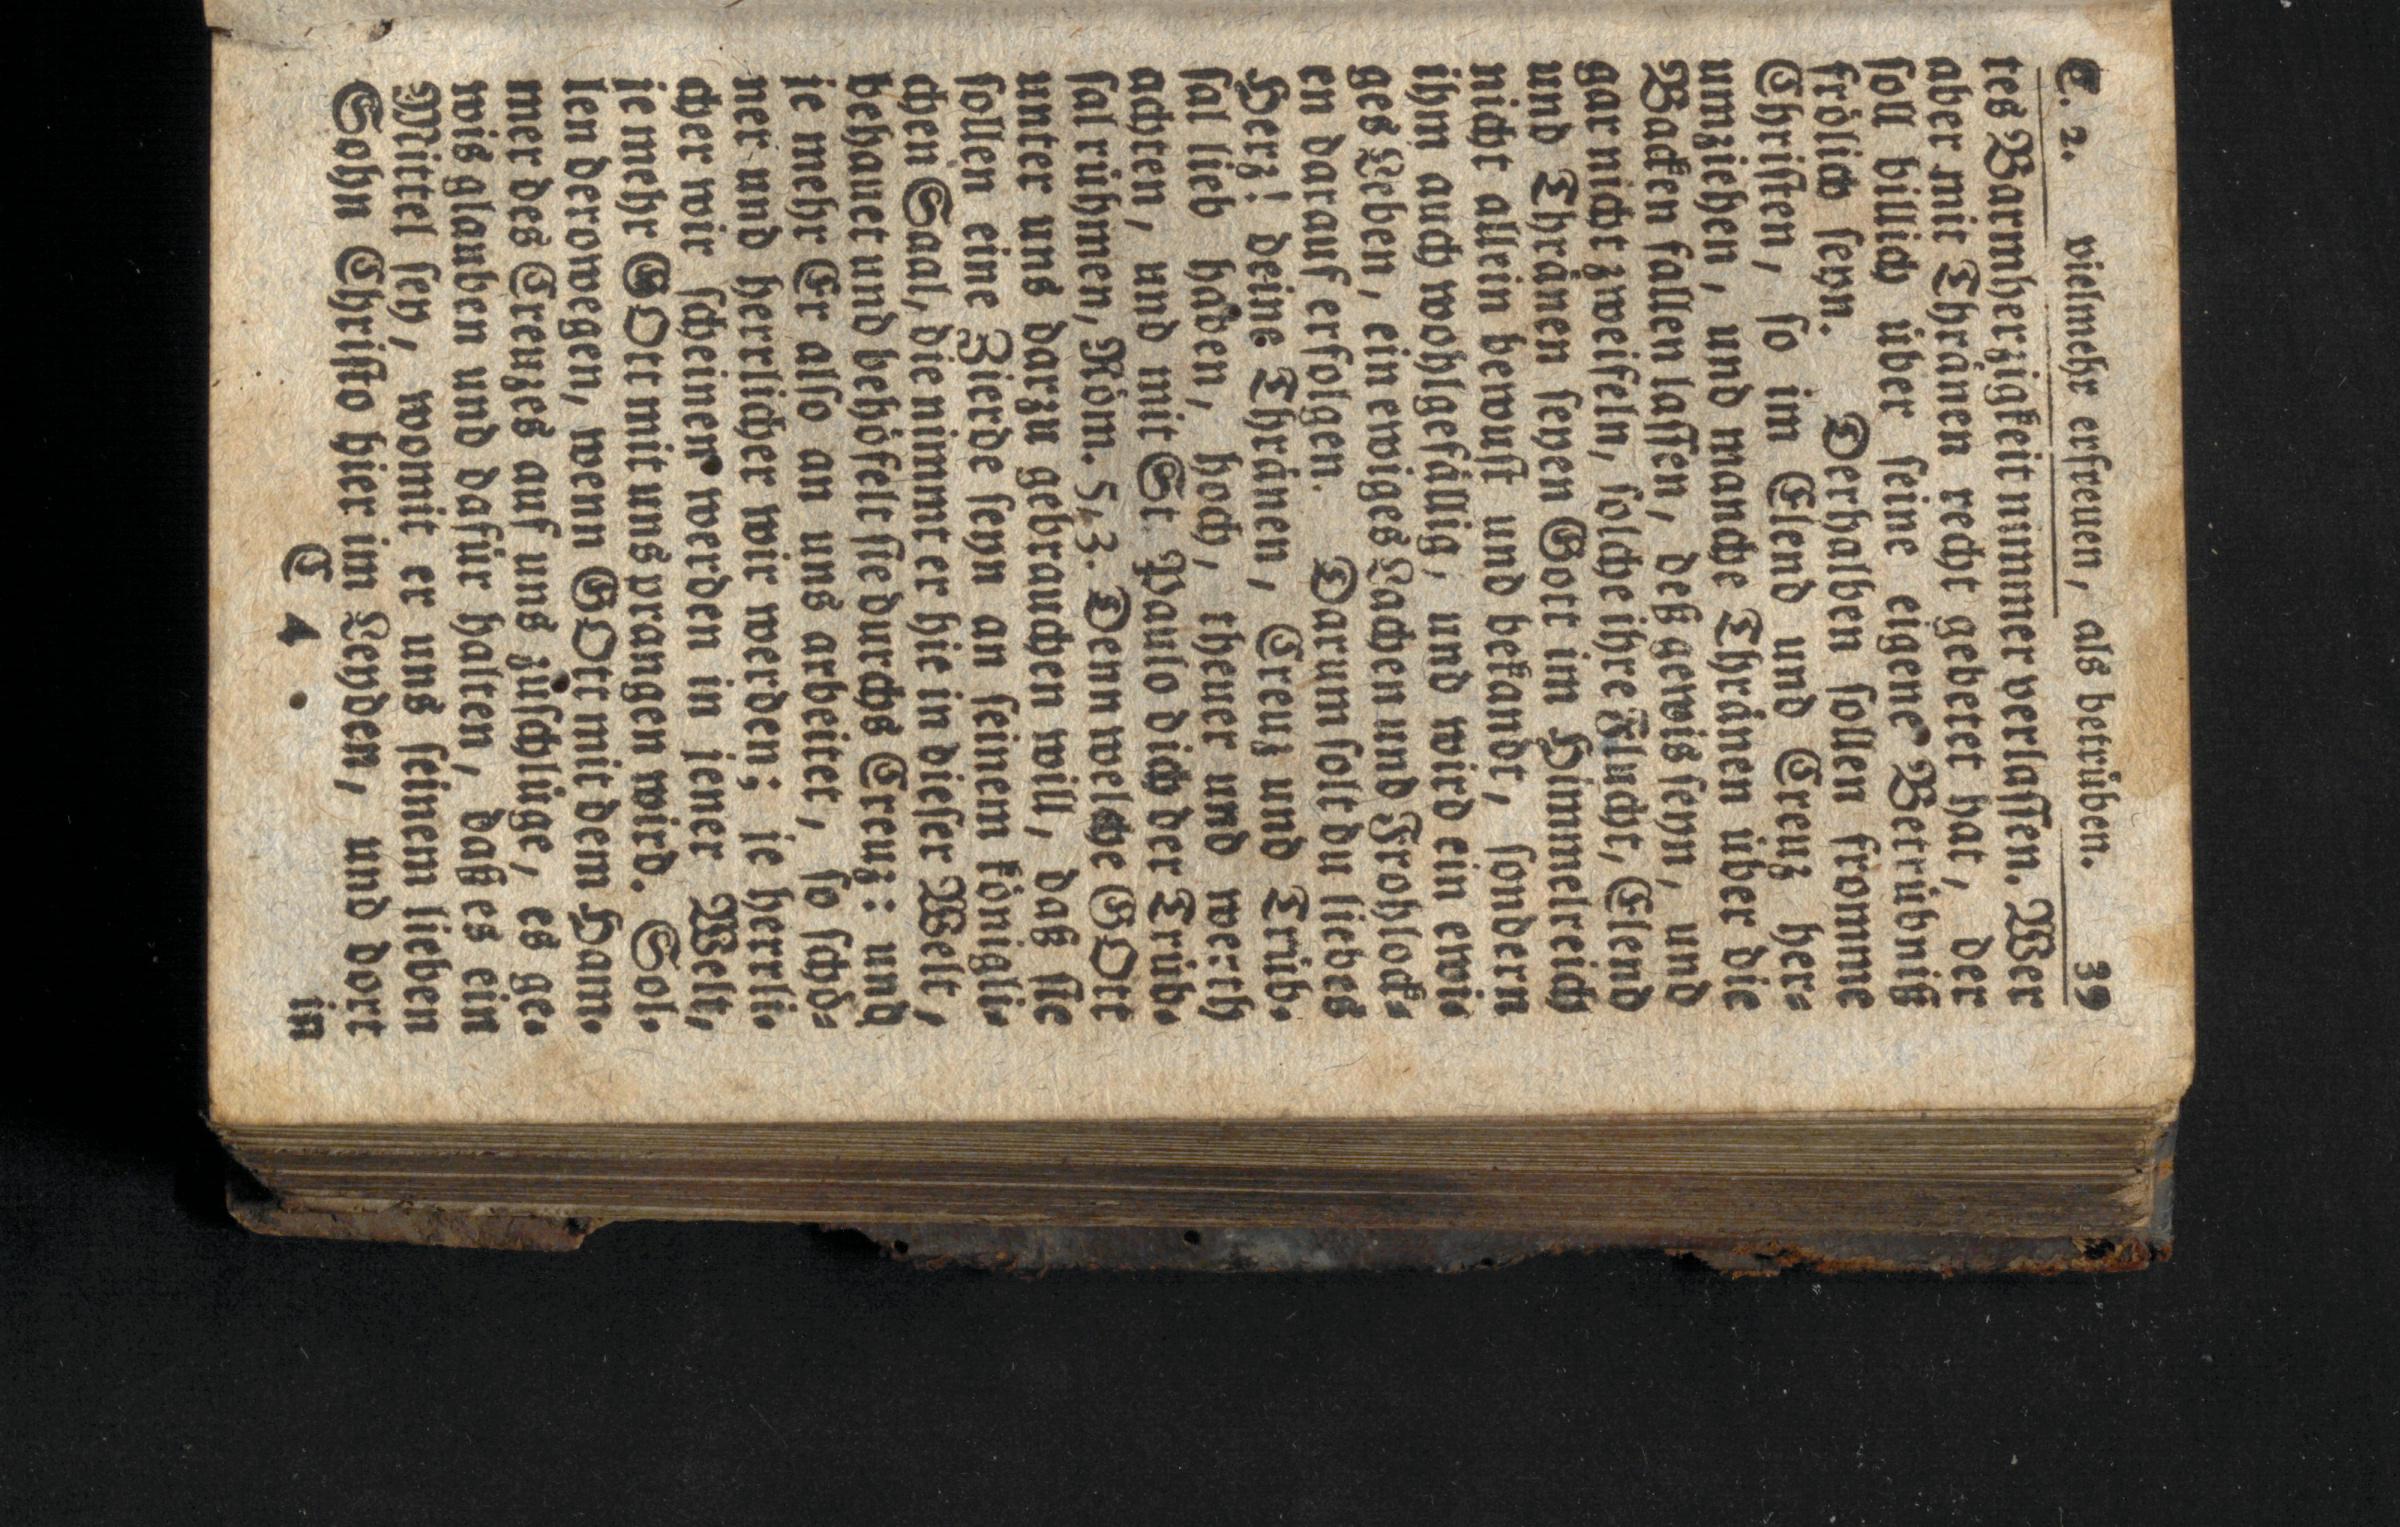 C. 2. vielmehr erfreuen, als betrüben. 39
tes Barmherzigkeit nimmer verlassen. Wer
aber mit Thränen recht gebetet hat, der
soll billich über seine eigene Betrübniß
frölich seyn. Derhalben sollen fromme
Christen, so im Elend und Creuz her-
umziehen, und manche Thränen über die
Backen fallen lassen, deß gewis seyn, und
gar nicht zweifeln, solche ihre Flucht, Elend
und Thränen seyen Gott im Himmelreich
nicht allein bewust und bekandt, sondern
ihm auch wohlgefällig, und wird ein ewi-
ges Leben, ein ewiges Lachen und Frohlock-
en darauf erfolgen. Darum solt du liebes
Herz! deine Thränen, Creuz und Trüb-
sal lieb haben, hoch, theuer und werth
achten, und mit St. Paulo dich der Trüb-
sal rühmen, Röm. 5,3. Denn welche GOtt
unter uns darzu gebrauchen will, daß sie
sollen eine Zierde seyn an seinem königli-
chen Saal, die nimmt er hie in dieser Welt,
behauet und behöfelt sie durchs Creuz: und
je mehr Er also an uns arbeitet, so schö-
ner und herrlicher wir werden; je herrli-
cher wir scheinen werden in jener Welt,
je mehr GOtt mit uns prangen wird. Sol-
len derowegen, wenn GOtt mit dem Ham-
mer des Creuzes auf uns zuschlüge, es ge-
wis glauben und dafür halten, daß es ein
Mittel sey, womit er uns seinen lieben
Sohn Christo hier im Leyden, und dort
C 4 in